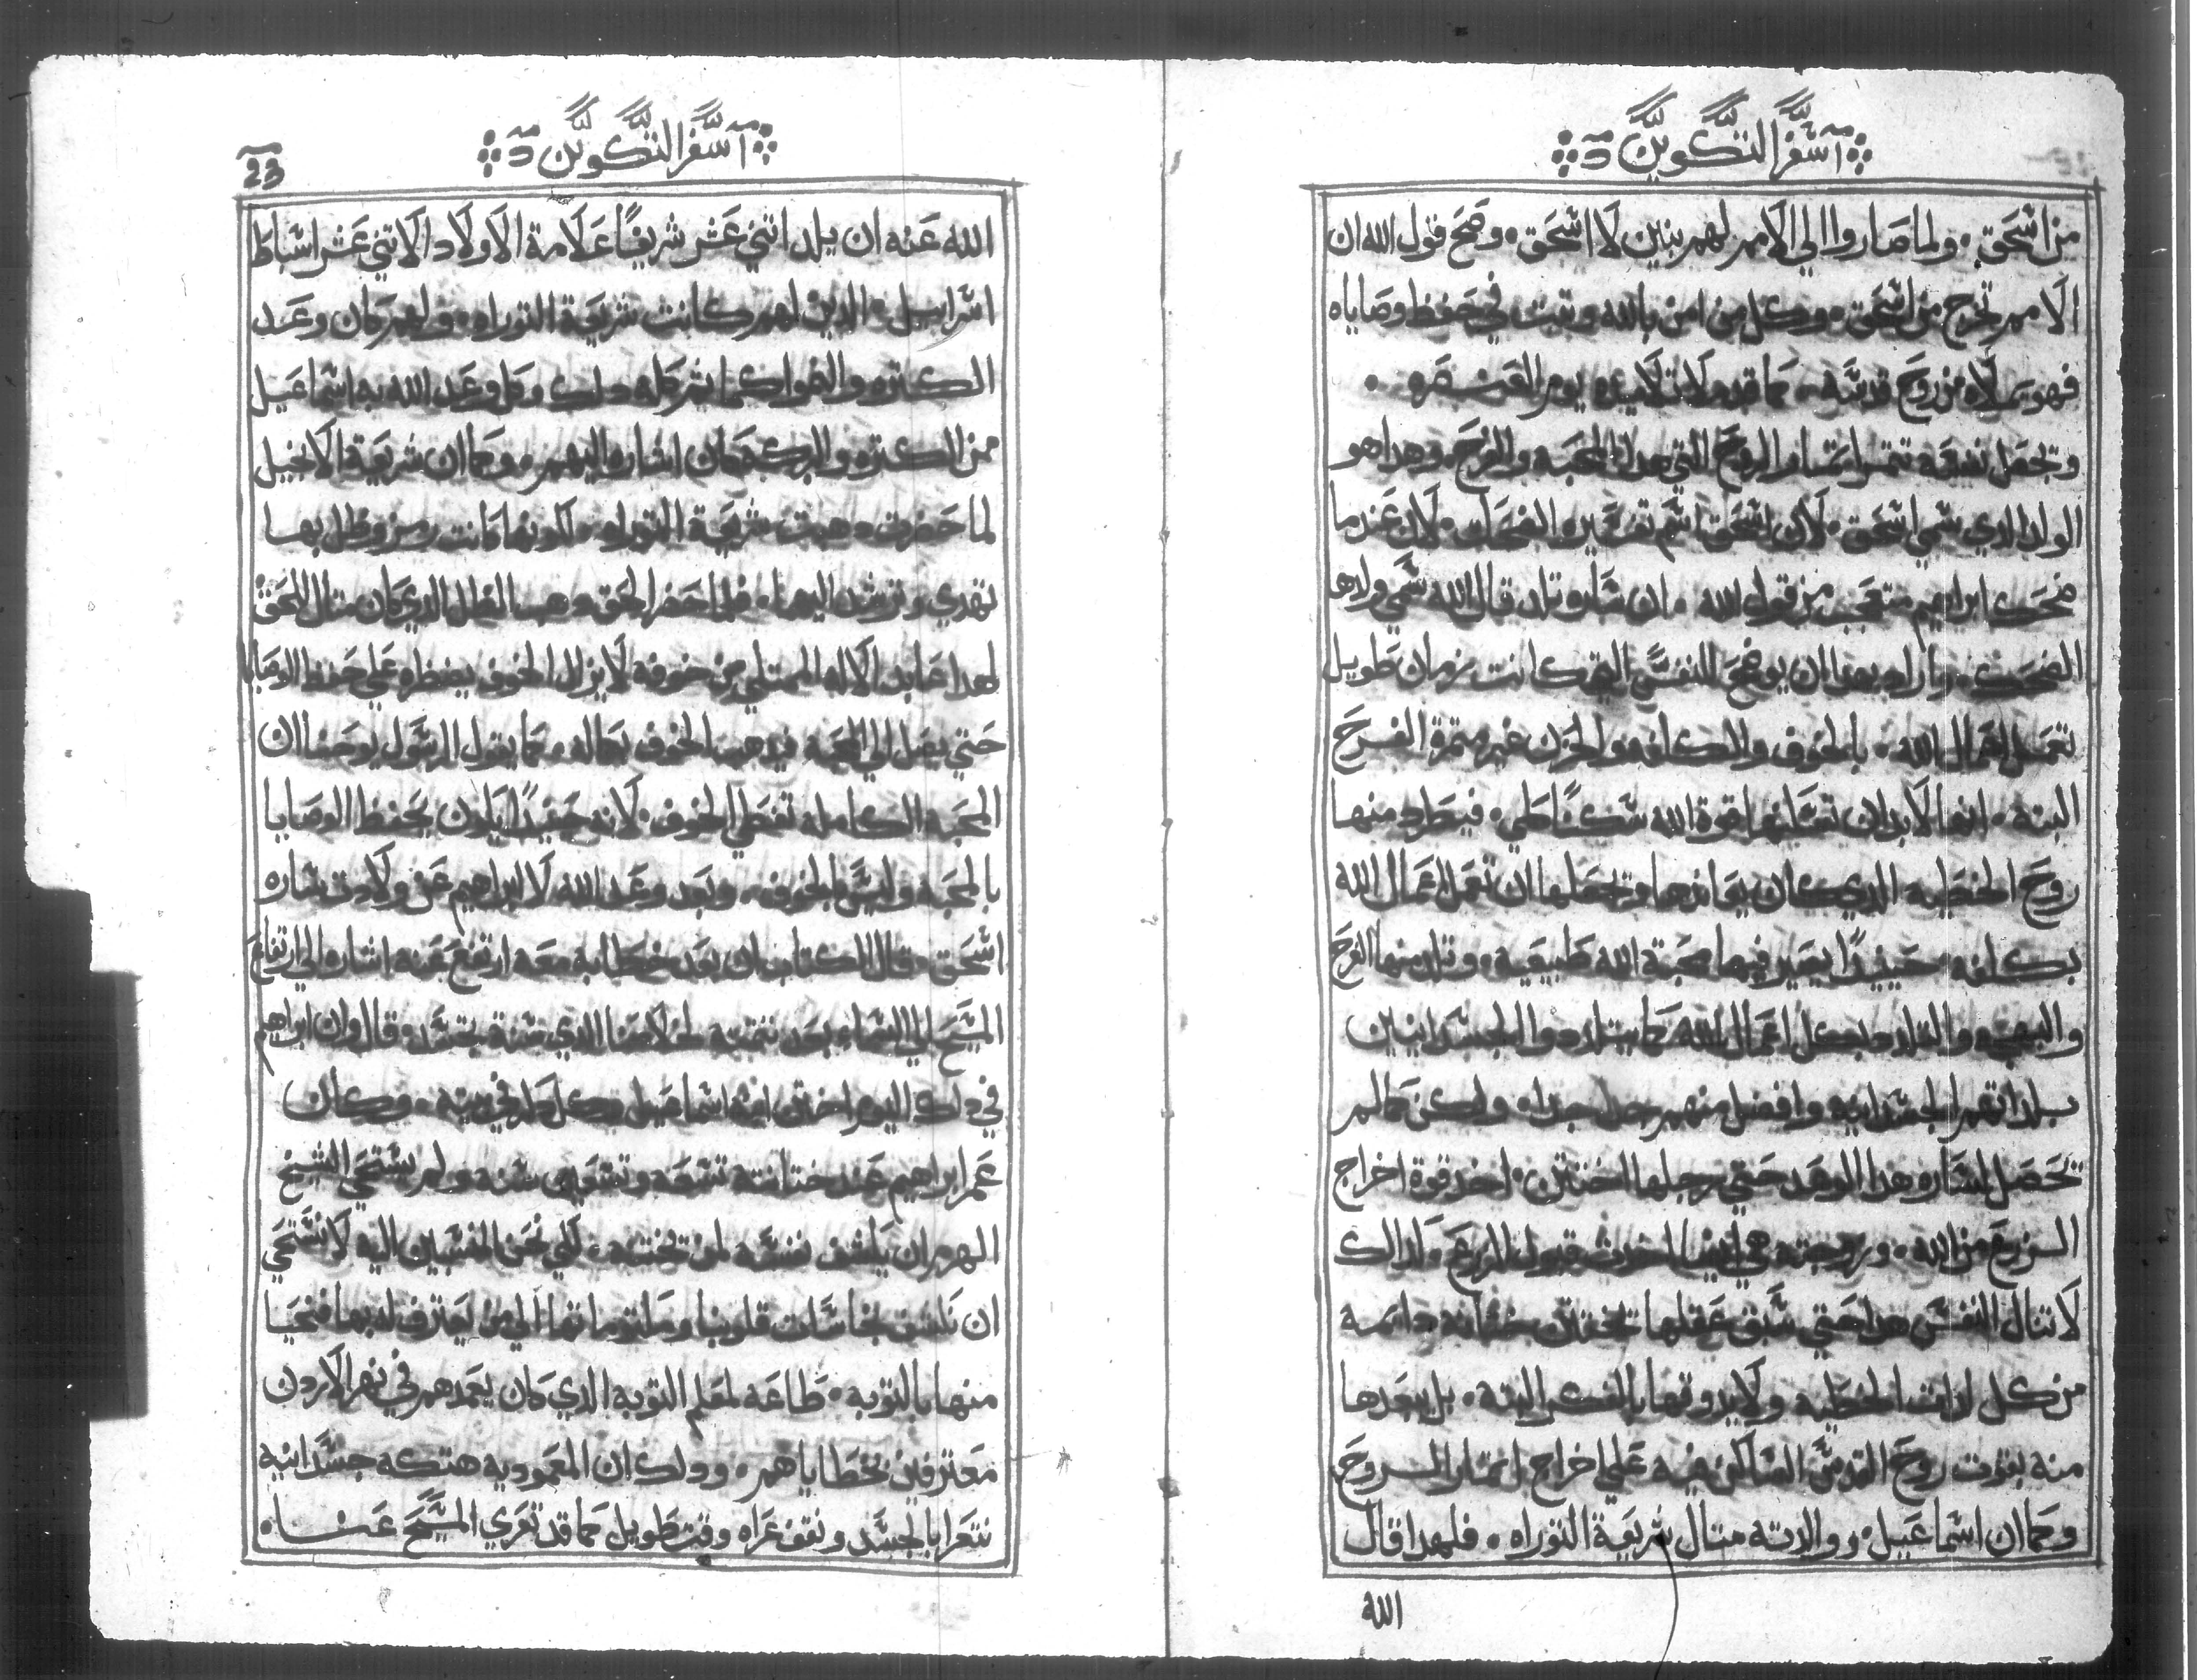 سفر التكوين
من اسحق ۰ ولما صاروا الي الامم لهم بنين لاسحق ۰ وصح قول الله ان
الامم تخرج من اسحق ۰ وكل من امن بالله وتبت في حفظ وصاياه
فهو يملاه من روح قدسه ۰ كما قد ملا تلاميذه يوم العنصره ۰
وتحصل نفسه تتمر اتمار الروح التي هي المحبه والفرح وهدا هو
الولد الدي سمي اسحق ۰ لان اسحق اسم تفسيره الضحك ۰ لان عندما
ضحك ابراهيم متعجب من قول الله ۰ ان ساره تلد قال الله سمي ولدها
الضحك ۰ واراد بهدا ان يوضح للنفس التي كانت زمان طويل
تعمل اعمال الله ۰ بالخوف والكلفه والحزن غير متمرة الفرح
البته ۰ انها لابد ان تملها قوة الله سكناطي ۰ فيطرد منها
روح الخطيه الدي كان يعاندها وتجعلها ان تعمل اعمال الله
بكلفه ۰ حينيدًا يصير فيها محبة الله طبيعيه ۰ وتلد منها الفرح
والبهجه والتلدد بكل اعمال الله كما يتلدد والجسدانيين
بلداتهم الجسدانيه وافضل منهم جدا جدا ۰ ولكن كما لم
تحصل لساره هدا الوعد حتي رجلها اختتن ۰ اخد قوة اخراج
الزرع من الله ۰ وزوجته هي ايضا اخدت قبول الزرع ۰ كدالك
لا تنال النفس هدا حتي سبق عقلها تختتن ختانه دايمه
من كل لدات الخطيه ولا يدوقها بالفكر البته ۰ بل يبعدها
منه بقوت روح القدس الساكن فيه علي اخراج اتمار الروح
وكما ان اسماعيل ۰ ووالدته متال شريعة التوراه ۰ فلهدا قال
الله
23
سفر التكوين
الله عنه ان يلد اتني عشر شريفًا علامة الاولاد الاتني عشر اسباط
اسراييل ۰ الدين لهم كانت شريعة التوراه ۰ ولهم كان وعد
الكتره والنموا كما اشر كله دلك وكل وعد الله به اسماعيل
من الكتره والبركه كان اشاره اليهم ۰ وكما ان شريعة الانجيل
لما حضرت ۰ دهبت شريعة التوراه ۰ لكونها كانت رمز وظل بها
تهدي وترشد اليها ۰ فلما حضر الحق دهب الظل الدي كان متال الحق
لهدا عابد الاله الممتلي من خوفه لا يزال الخوف يضطره علي حفظ الوصايا
حتي يصل الي المحبه فيدهب الخوف بكماله ۰ كما يقول الرسول يوحنا ان
المحبه الكامله تقصي الخوف ۰ لانه حينيدًا يكون يحفظ الوصايا
بالمحبه وليس بالخوف ۰ وبعد وعد الله لابراهيم عن ولادت ساره
اسحق ۰ قال الكتاب ان بعد خطابه معه ارتفع عنه اشاره الي ارتفاع
المسيح الي السما ۰ بعد تتميه لخلاصنا الدي صنعه بجسده وقال وان ابراهيم
في دلك اليوم اختن ابنه اسماعيل وكل دكر في بيته ۰ وكان
عمر ابراهيم عند ختانته تسعه وتسعون سنه ولم يستحي الشيخ
الهرم ان يكشف نفسه لمن تختنه ۰ لكي نحن المنسبين اليه لا نستحي
ان نكشف نجاسات قلوبنا ومكتوماتها الي من يعترف له بها فنحيا
منها بالتوبه ۰ طاعه لمعلم التوبه الدي كان يعمدهم في نهر الاردن
معترفين بخطاياهم ۰ ودلك ان المعموديه هتكه جسدانيه
نتعرا بالجسد ونقف عراه وقت طويل كما قد تعري المسيح عنا ۰